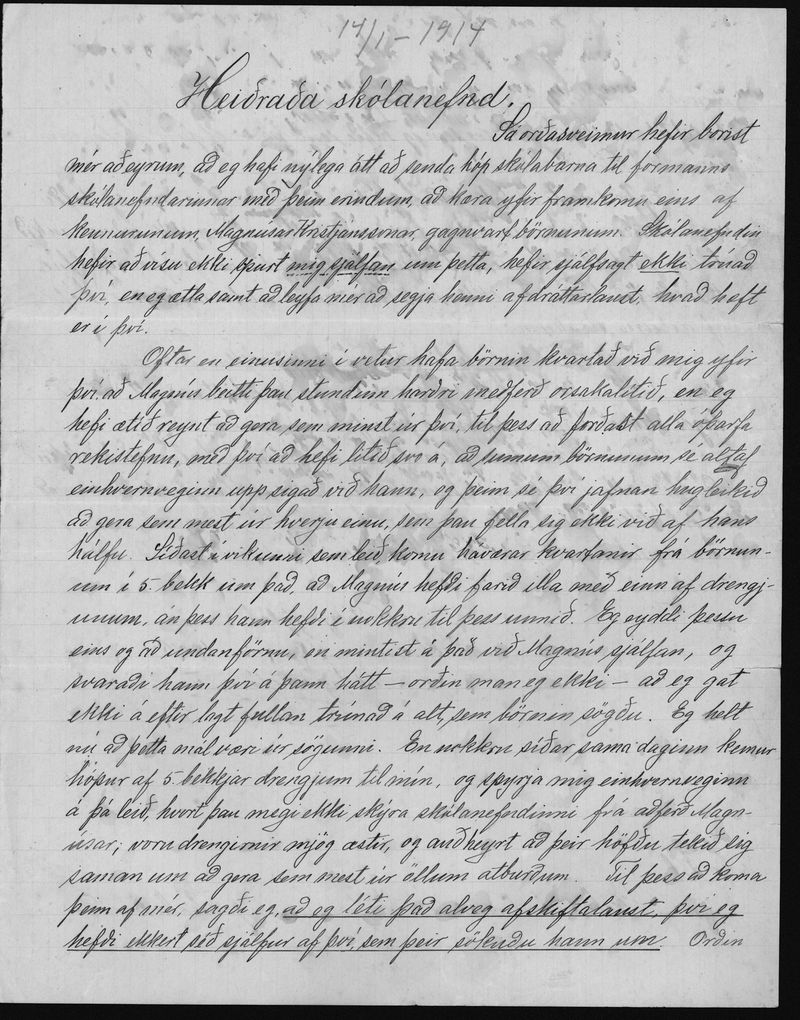 14/1 - 1914
Heiðraða skólanefnd.
Sá orðasveimur hefir borist
mér að eyrum, að eg hafi nýlega átt að senda hóp skólabarna til formanns
skólanefndarinnar með þeim erindum, að kæra yfir framkomu eins af
kennurunum, Magnúsar Kristjánssonar, gagnvart börnunum. Skólanefndin
hefir að vísu ekki spurt mig sjálfan um þetta, hefir sjálfsagt ekki trúað
því, en eg ætla samt að leyfa mér að segja henni afdráttarlaust, hvað hæft
er í því.
Oftar en einusinni í vetur hafa börnin kvartað við mig yfir
því, að Magnús beitti þau stundum harðri meðferð orsakalítið, en eg
hefi ætið reynt að gera sem minst úr því, til þess að forðast alla óþarfa
rekistefnu, með því að hefi litið svo á, að sumum börnunum sé altaf
einhvernveginn uppsigað við hann, og þeim sé því jafnan hugleikið
að gera sem mest úr hverju einu, sem þau fella sig ekki við af hans
hálfu. Síðast í vikunni sem leið, komu háværar kvartanir frá börnun-
um í 5. bekk um það, að Magnús hefði farið illa með einn af drengj-
unum, án þess hann hefði í nokkru til þess unnið. Eg eyddi þessu
eins og að undanförnu, en mintist á það við Magnús sjálfan, og
svaraði hann því á þann hátt - orðin man eg ekki - að eg gat
ekki á eftir lagt fullan trúnað á alt, sem börnin sögðu. Eg helt
nú að þetta mál væri úr sögunni. En nokkru síðar sama daginn kemur
hópur af 5. bekkjar drengjum til mín, og spyrja mig einhvernveginn
á þá leið, hvort þau megi ekki skýra skólanefndinni frá aðferð Magn-
úsar; voru drengirnir mjög æstir, og auðheyrt að þeir höfðu tekið sig
saman um að gera sem mest úr öllum atburðum. Til þess að koma
þeim af mér, sagði eg, að eg léti það alveg afskiftalaust, því eg
hefði ekkert séð sjálfur af því, sem þeir sökuðu hann um. Orðin